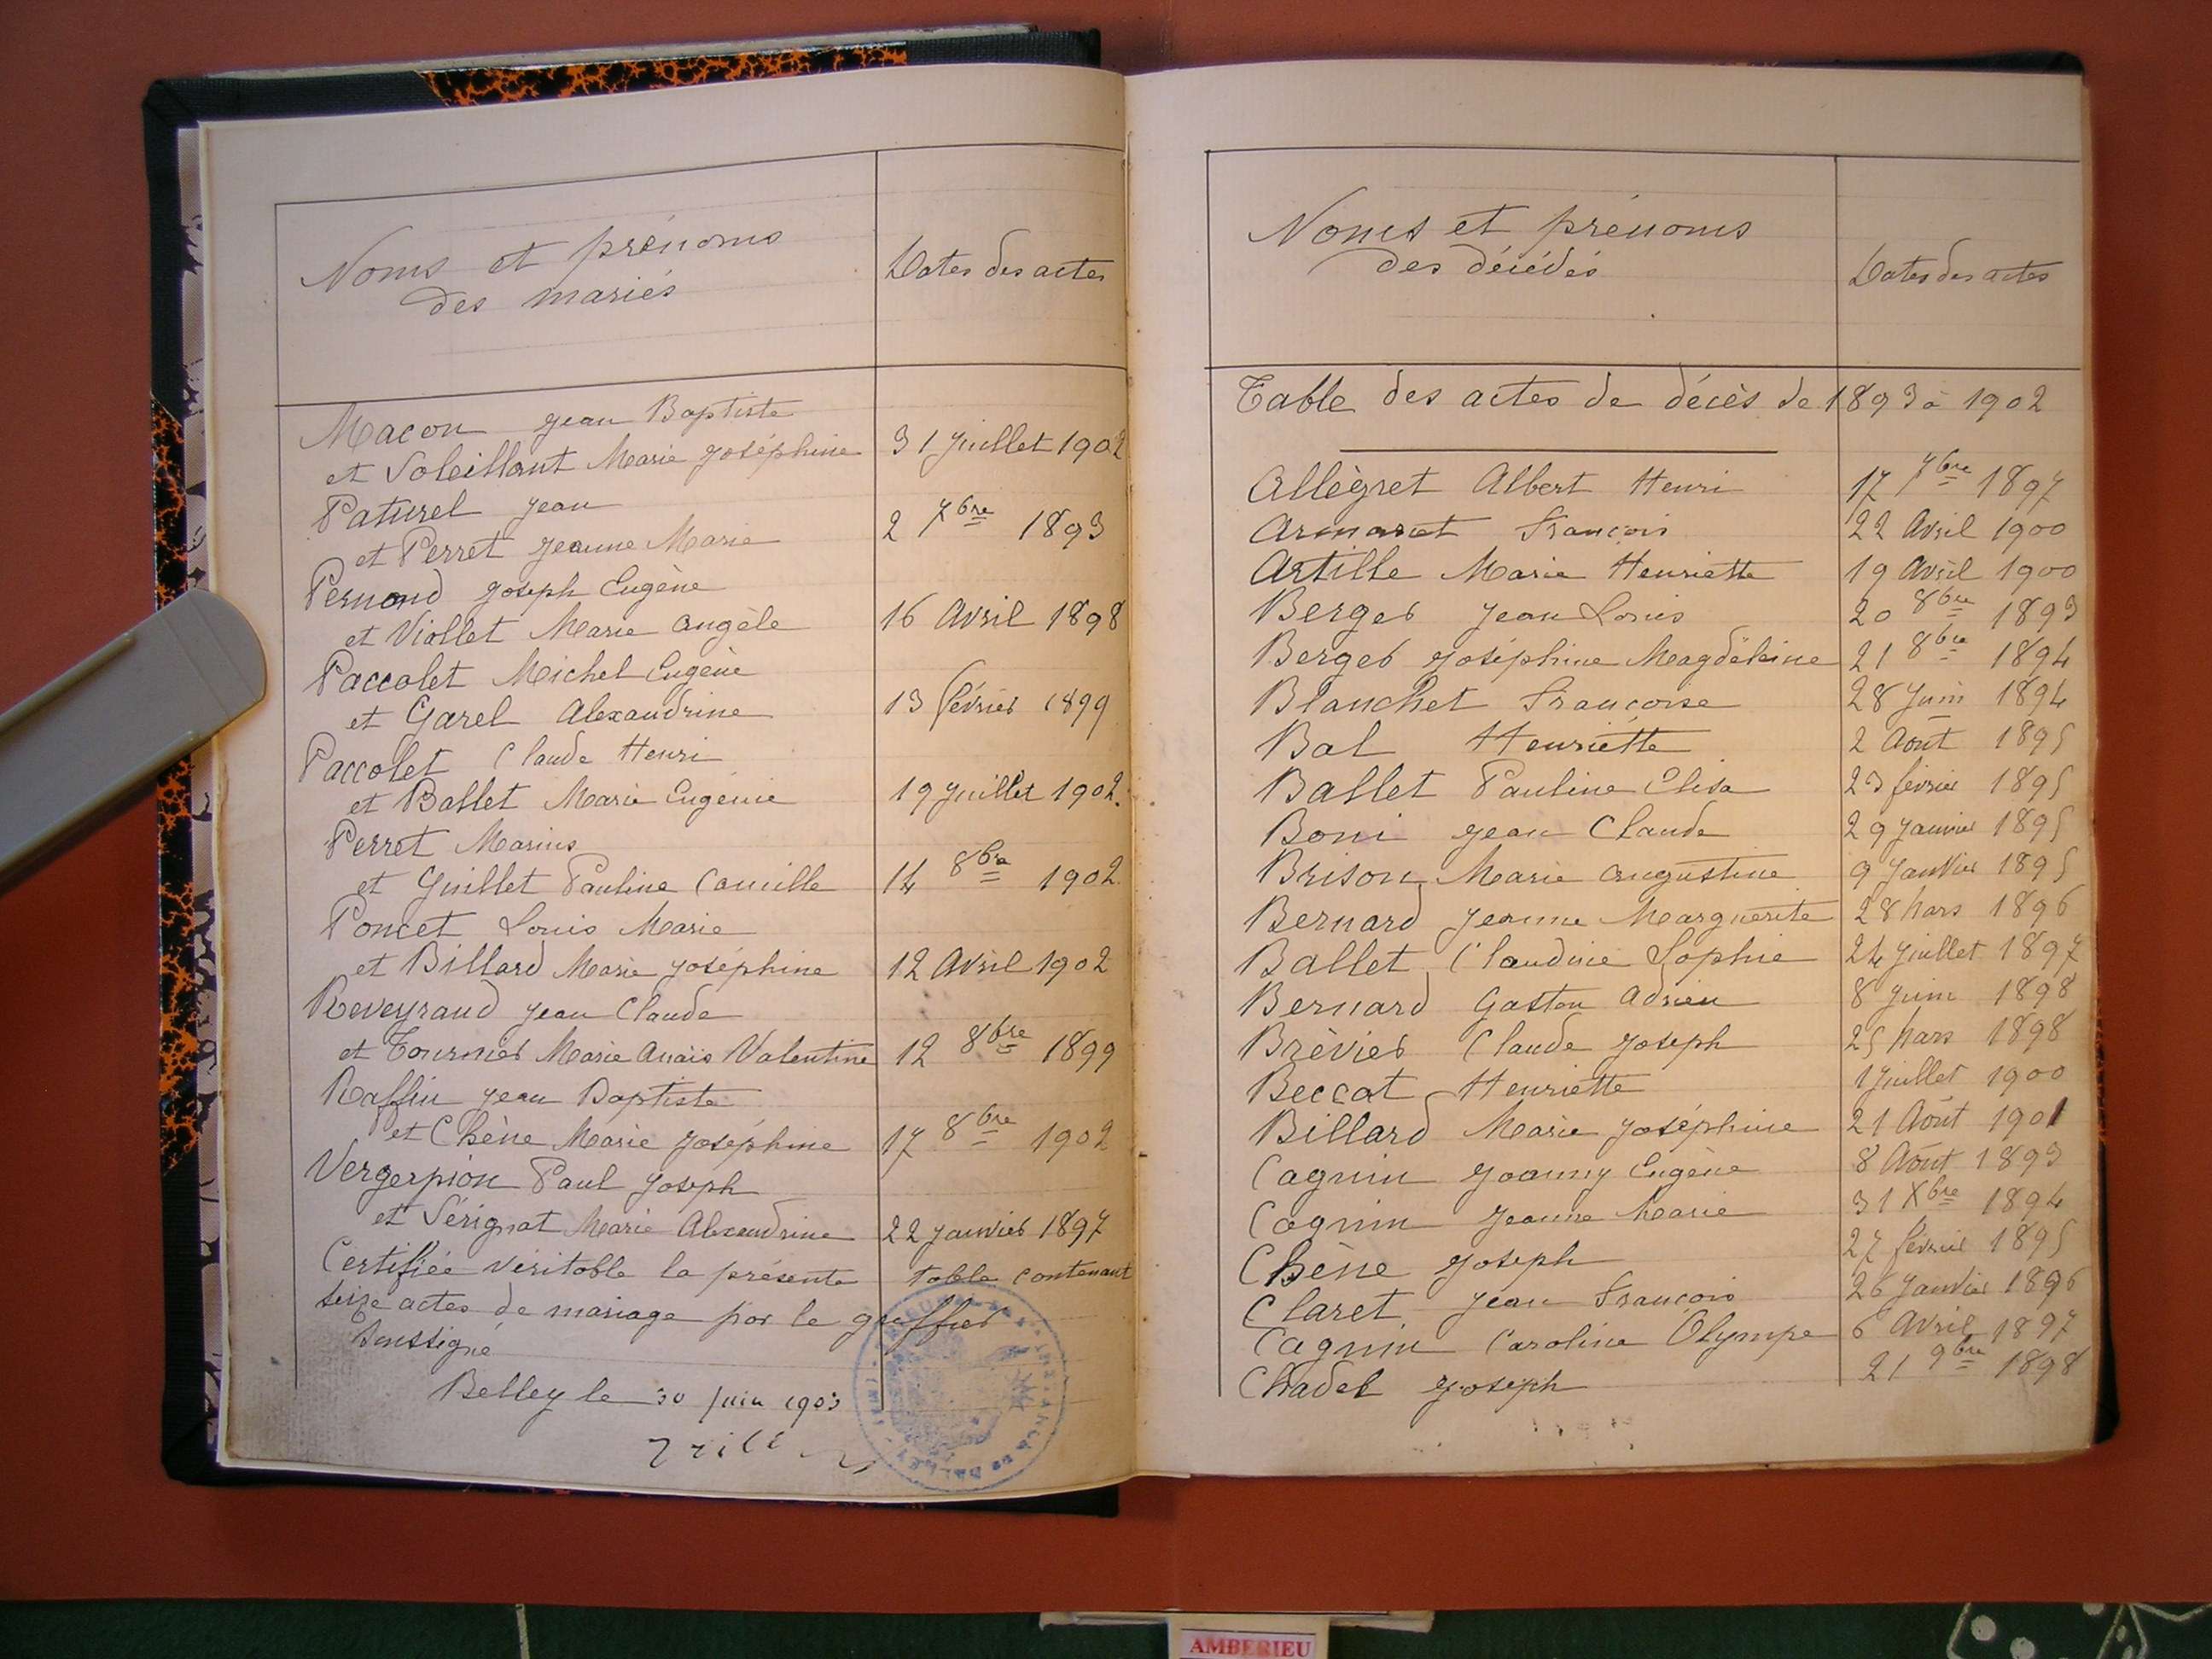 Noms et prénoms
des mariés
Dates des actes
Macon Jean Baptiste
et Soleillant Marie Joséphine 31 Juillet 1902
Paturel Jean
et Perret Jeanne Marie 2 7bre 1893
Pernond Joseph Eugène
et Viollet Marie Angèle 16 Avril 1898
Paccolet Michel Eugène
et Garel Alexandrine 13 février 1899
Paccolet Claude Henri
et Ballet Marie Eugénie 19 Juillet 1902.
Perret Marius
et Guillet Pauline Camille 14 8bre 1902
Poncet Louis Marie
et Billard Marie Joséphine 12 Avril 1902
Reveyraud Jean Claude
et Tournier Marie Anaïs Valentine 12 8bre 1899
Raffin Jean Baptiste
et Chêne Marie Joséphine 17 8bre 1902
Vergerpion Paul Joseph
et Sérignat Marie Alexandrine 22 Janvier 1897
Certifiée véritable la présente table contenant
seize actes de mariage par le greffier
soussigné
Belley le 30 Juin 1903
Noms et prénoms
des décédés
Dates des actes
Table des actes de décès de 1893 à 1902
Allègret Albert Henri 17 7bre 1897
Armanet François 22 Avril 1900
Artille Marie Henriette 19 Avril 1900
Berger Jean Louis 20 8bre 1893
Berger Joséphine Magdeleine 21 8bre 1894
Blanchet Françoise 28 Juin 1894
Bal Henriette 2 Août 1895
Ballet Pauline Elisa 23 février 1895
Boni Jean Claude 29 Janvier 1895
Brison Marie Augustine 9 Janvier 1895
Bernard Jeanne Marguerite 28 Mars 1896
Ballet Claudine Sophie 24 Juillet 1897
Bernard Gaston Adrien 8 Juin 1898
Brévier Claude Joseph 25 Mars 1898
Beccat Henriette 1 Juillet 1900
Billard Marie Joséphine 21 Août 1901
Cagnin Joanny Eugène 8 Août 1893
Cagnin Jeanne Marie 31 Xbre 1894
Chêne Joseph 27 février 1895
Claret Jean François 26 Janvier 1896
Cagnin Caroline Olympe 6 Avril 1897
Chadel Joseph 21 9bre 1898
AMBERIEU